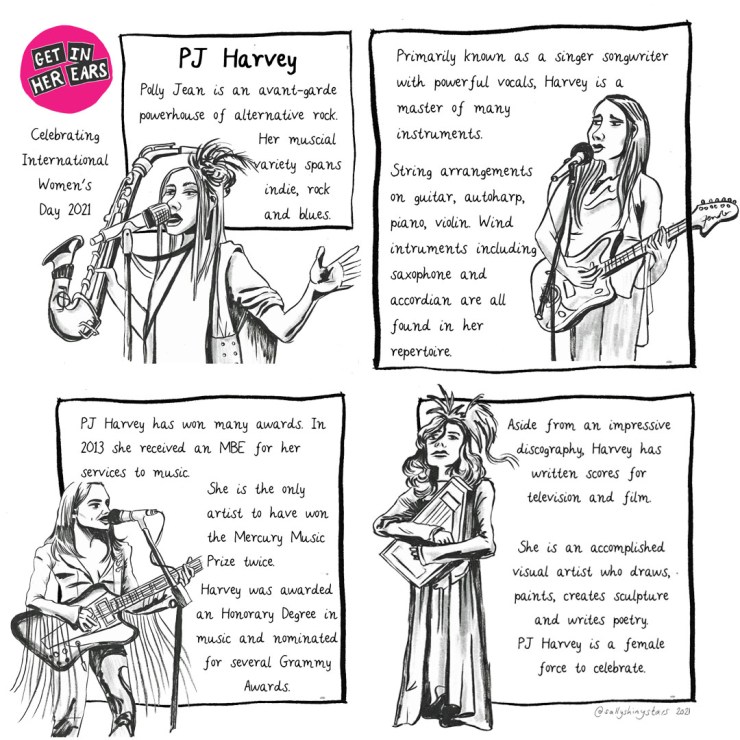 GET IN
HER EARS
Celebrating
International
Women's
Day 2021
PJ Harvey
Polly Jean is an avant-garde
powerhouse of alternative rock.
Her muscial
variety spans
indie, rock
and blues.
Primarily known as a singer songwriter
with powerful vocals, Harvey is a
master of many
instruments.
String arrangements
on guitar, autoharp,
piano, violin. Wind
intruments including
saxophone and
accordian are all
found in her
repertoire.
PJ Harvey has won many awards. In
2013 she received an MBE for her
services to music.
She is the only
artist to have won
the Mercury Music
Prize twice.
Harvey was awarded
an Honorary Degree in
music and nominated
for several Grammy
Awards.
Aside from an impressive
discography, Harvey has
written scores for
television and film.
She is an accomplished
visual artist who draws,
paints, creates sculpture
and writes poetry.
PJ Harvey is a female
force to celebrate.
@sallyshinystars 2021